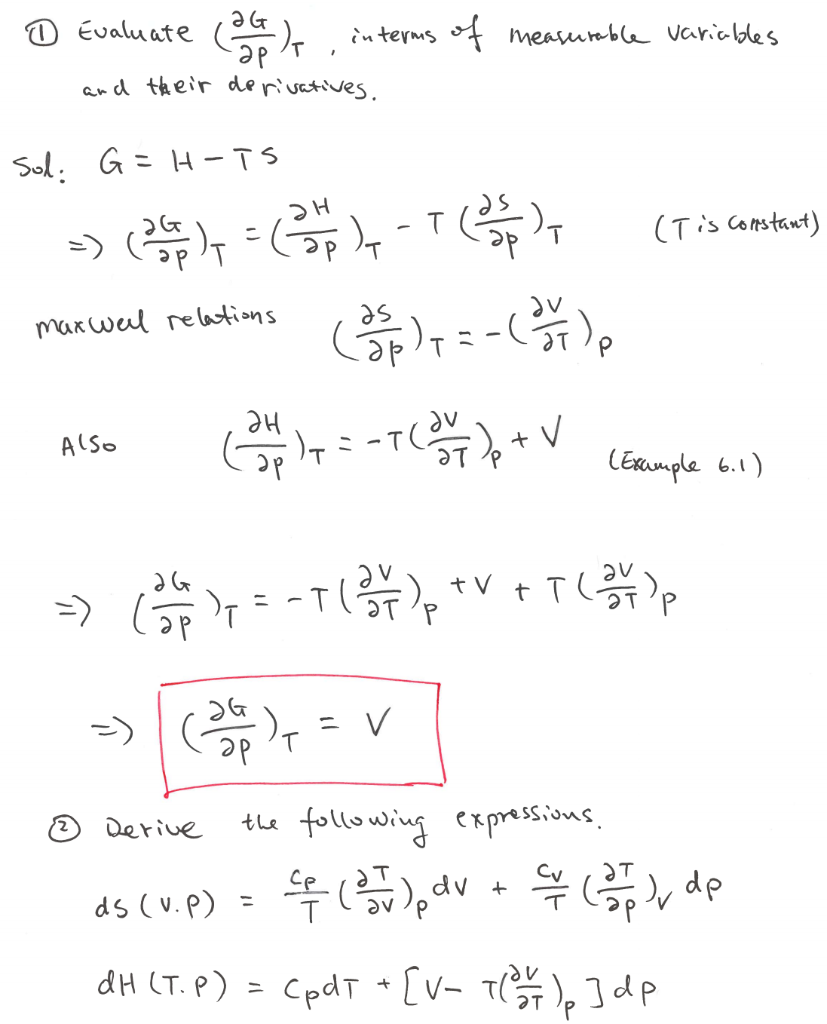 ① Evaluate (∂G/∂p)_T , in terms of measurable variables
and their derivatives.
Sol: G = H - TS
=> (∂G/∂p)_T = (∂H/∂p)_T - T (∂S/∂p)_T (T is constant)
maxwell relations (∂S/∂p)_T = -(∂V/∂T)_p
Also (∂H/∂p)_T = -T(∂V/∂T)_p + V (Example 6.1)
=> (∂G/∂p)_T = -T(∂V/∂T)_p + V + T(∂V/∂T)_p
=> (∂G/∂p)_T = V
② Derive the following expressions.
ds (v.p) = Cp/T (∂T/∂v)_p dv + Cv/T (∂T/∂p)_v dp
dH (T.p) = CpdT + [V - T(∂V/∂T)_p] dp